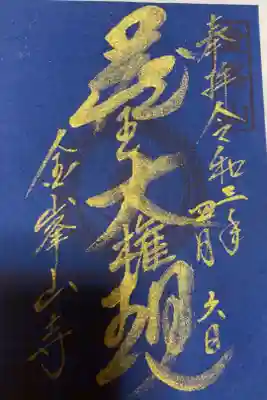 奉拝 令和二年
四月 六日
蔵王大権現
金峯山寺